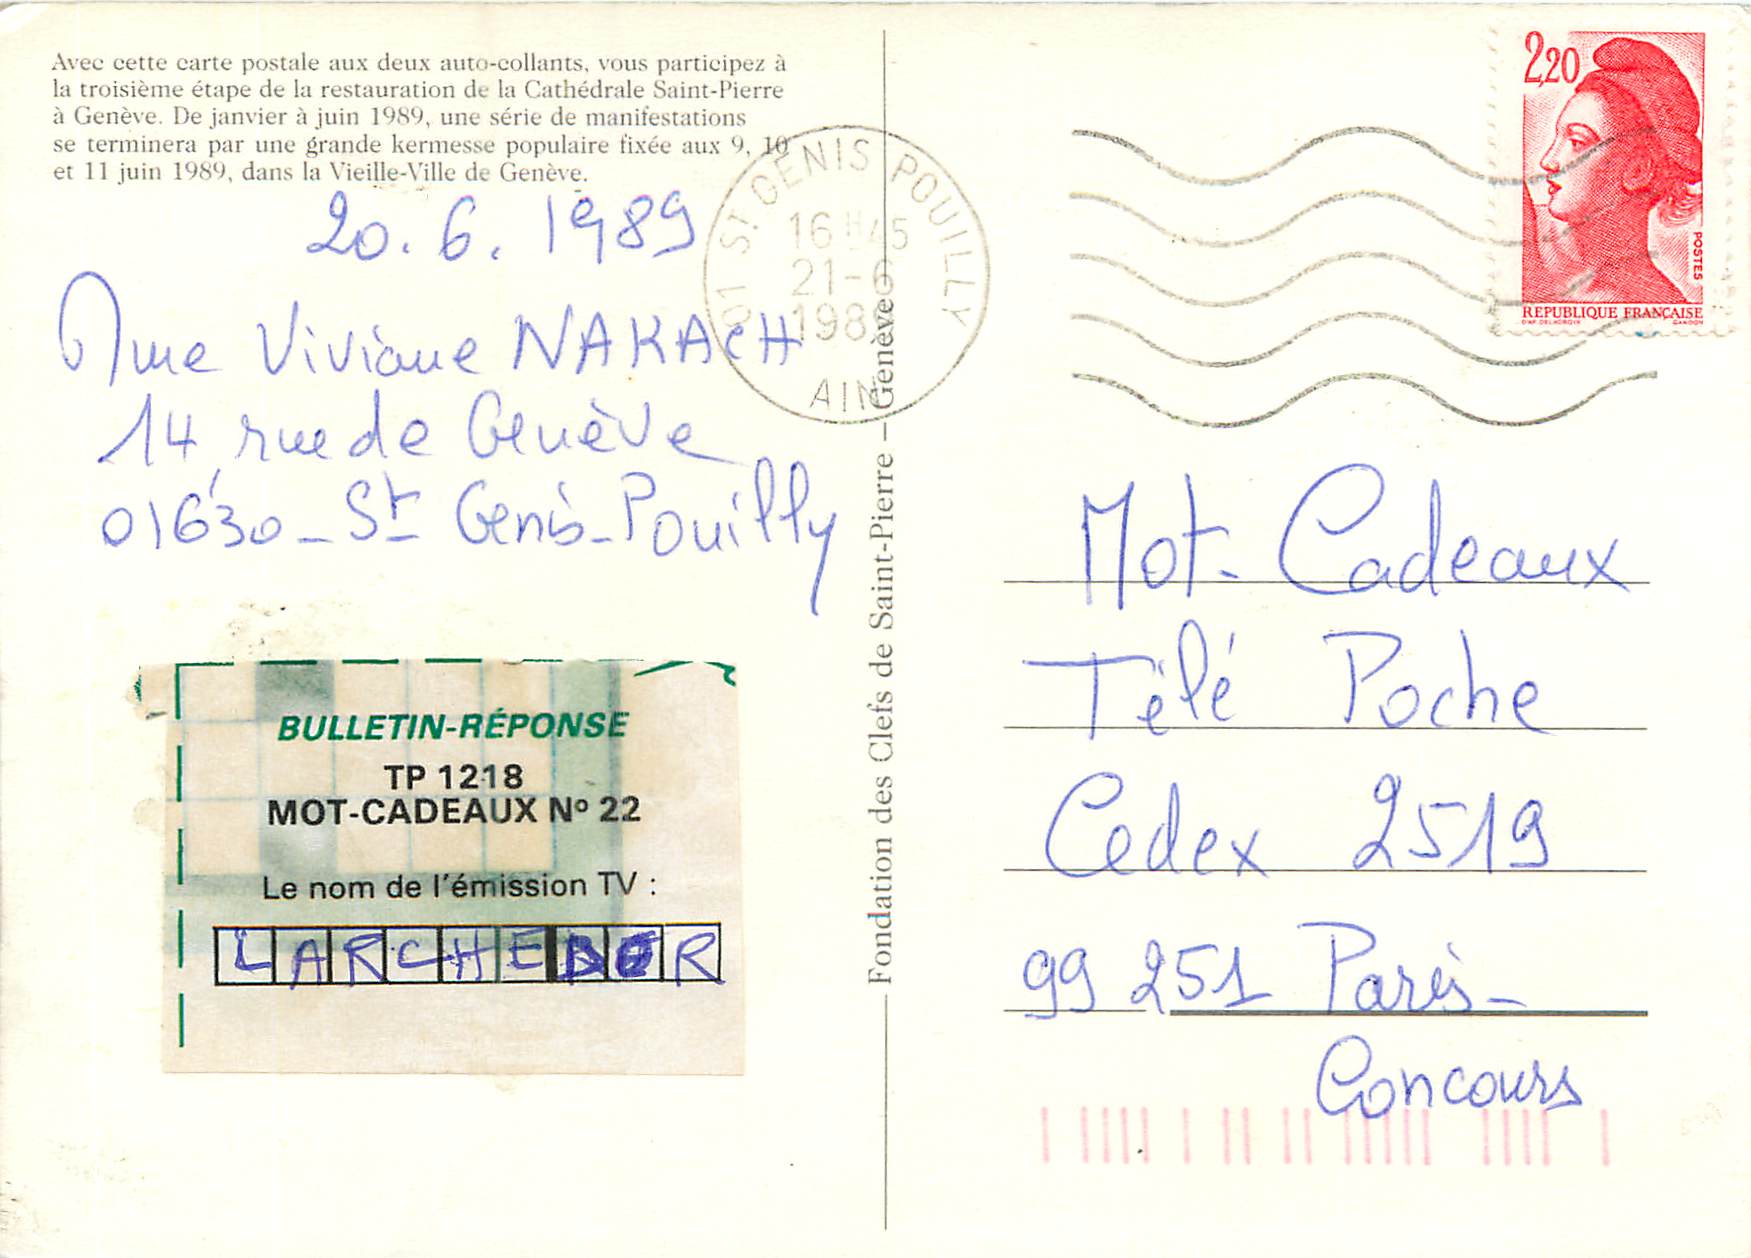 Avec cette carte postale aux deux auto-collants, vous participez à
la troisième étape de la restauration de la Cathédrale Saint-Pierre
à Genève. De janvier à juin 1989, une série de manifestations
se terminera par une grande kermesse populaire fixée aux 9, 10
et 11 juin 1989, dans la Vieille-Ville de Genève.
20.6.1989
Mme Viviane NAKACH
14, rue de Genève
01630 - St Genis-Pouilly
BULLETIN-RÉPONSE
TP 1218
MOT-CADEAUX Nº 22
Le nom de l'émission TV :
LARCHEDOR
Fondation des Clefs de Saint-Pierre – Genève
01 ST GENIS POUILLY
16 H 45
21-6
1989
AIN
2,20
POSTES
REPUBLIQUE FRANÇAISE
D'AP. DELACROIX
GANDON
Mot-Cadeaux
Télé Poche
Cedex 2519
99 251 Paris-
Concours